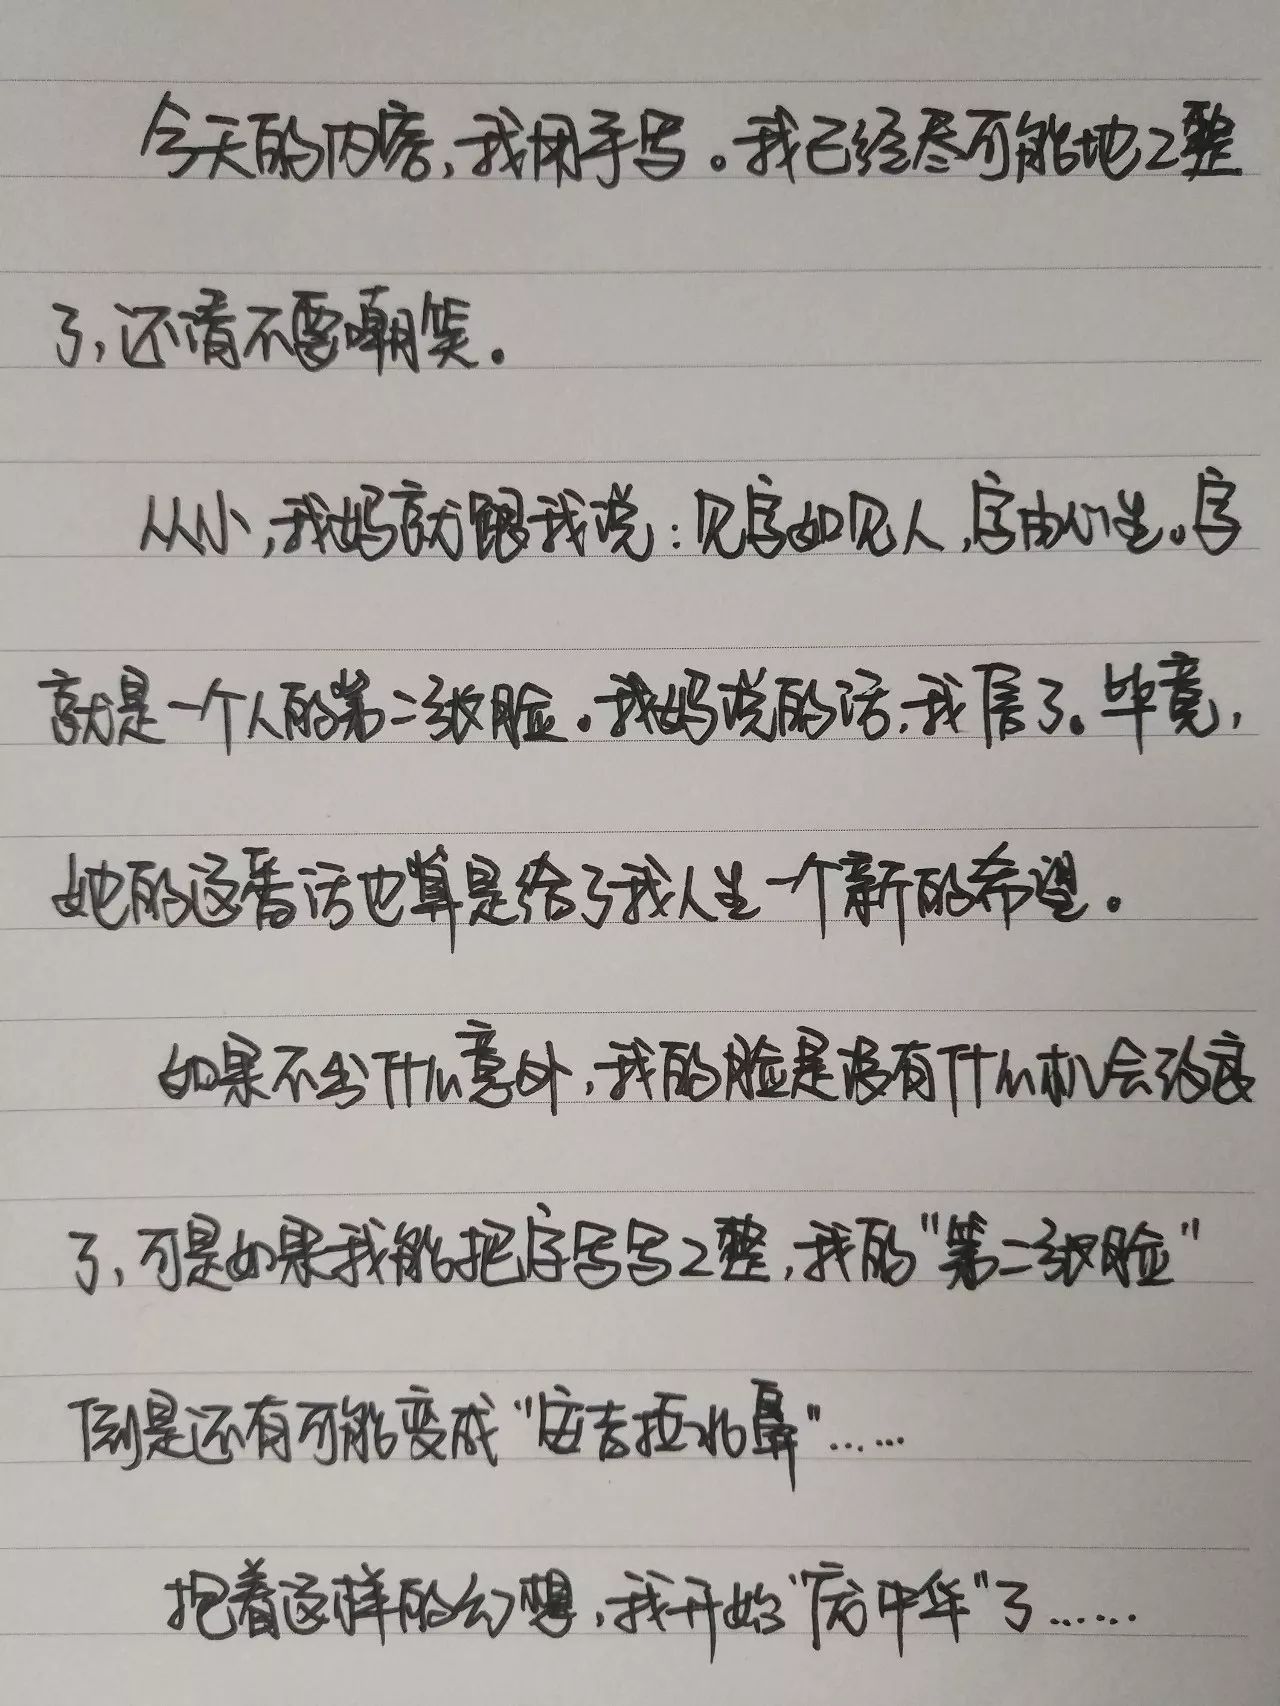 今天的内容,我用手写。我已经尽可能地工整
了,还请不要嘲笑。
从小,我妈就跟我说:见字如见人,字由心生。字
就是一个人的第二张脸。我妈说的话,我信了。毕竟,
她的这番话也算是给了我人生一个新的希望。
如果不出什么意外,我的脸是没有什么机会改良
了,可是如果我能把字写写工整,我的"第二张脸"
倒是还有可能变成"安吉拉北鼻"……
抱着这样的幻想,我开始"庞中华"了……